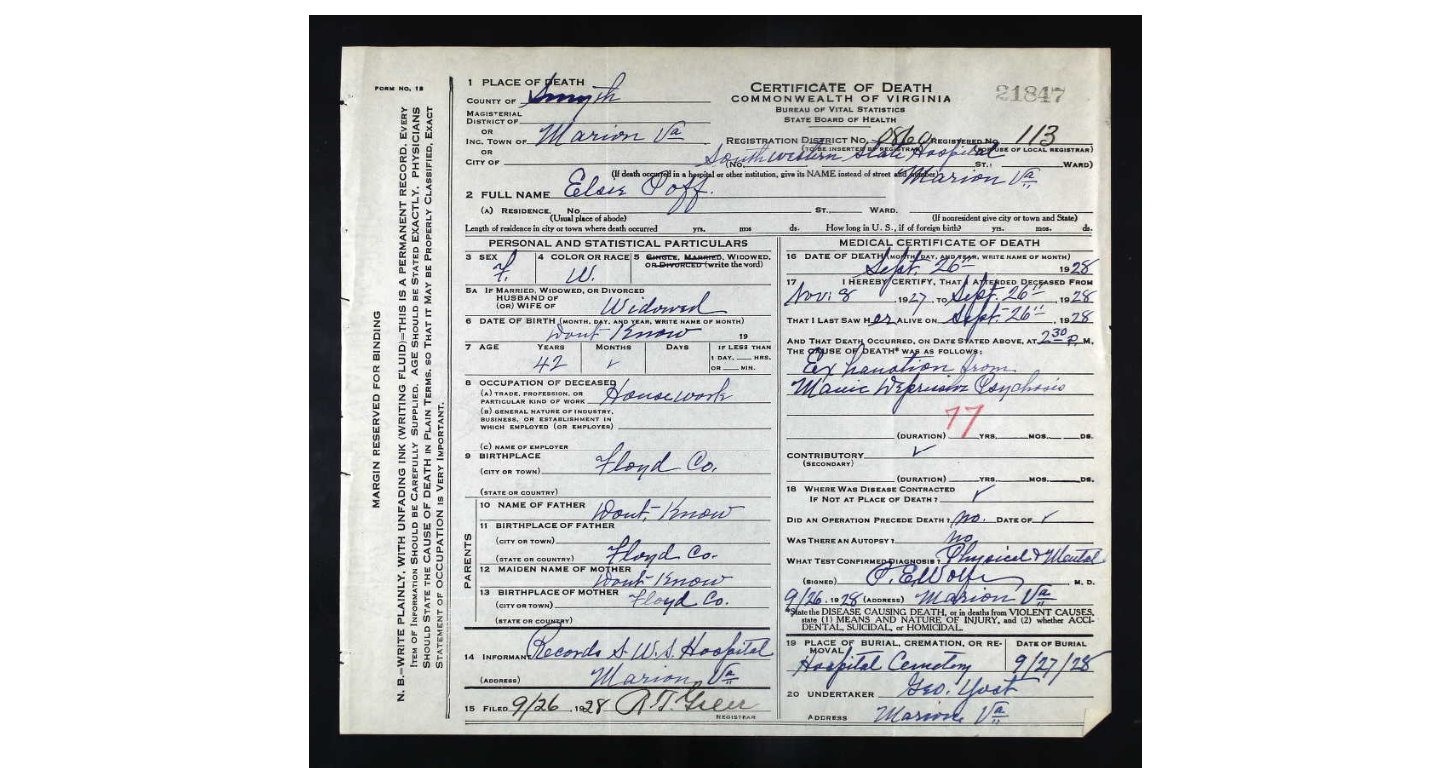 FORM NO. 12
MARGIN RESERVED FOR BINDING
N. B.—WRITE PLAINLY, WITH UNFADING INK (WRITING FLUID)—THIS IS A PERMANENT RECORD. EVERY
ITEM OF INFORMATION SHOULD BE CAREFULLY SUPPLIED. AGE SHOULD BE STATED EXACTLY. PHYSICIANS
SHOULD STATE THE CAUSE OF DEATH IN PLAIN TERMS, SO THAT IT MAY BE PROPERLY CLASSIFIED. EXACT
STATEMENT OF OCCUPATION IS VERY IMPORTANT.
1 PLACE OF DEATH
COUNTY OF Smyth
MAGISTERIAL
DISTRICT OF
OR
INC. TOWN OF Marion Va
OR
CITY OF
CERTIFICATE OF DEATH
COMMONWEALTH OF VIRGINIA
BUREAU OF VITAL STATISTICS
STATE BOARD OF HEALTH
21847
REGISTRATION DISTRICT NO. 086 REGISTERED NO. 113
(TO BE INSERTED BY REGISTRAR) (FOR USE OF LOCAL REGISTRAR)
(No. Southwestern State Hospital ST.: WARD)
(If death occurred in a hospital or other institution, give its NAME instead of street and number) Marion Va
2 FULL NAME Elsie Poff.
(A) RESIDENCE. No. ST., WARD.
(Usual place of abode) (If nonresident give city or town and State)
Length of residence in city or town where death occurred yrs. mos ds. How long in U. S., if of foreign birth? yrs. mos. ds.
PERSONAL AND STATISTICAL PARTICULARS
3 SEX F. 4 COLOR OR RACE W. 5 SINGLE, MARRIED, WIDOWED,
OR DIVORCED (write the word)
5A IF MARRIED, WIDOWED, OR DIVORCED
HUSBAND OF
(OR) WIFE OF Widowed
6 DATE OF BIRTH (MONTH, DAY, AND YEAR, WRITE NAME OF MONTH)
Dont Know 19
7 AGE YEARS MONTHS DAYS IF LESS THAN
1 DAY, HRS.
OR MIN.
42 ✓
8 OCCUPATION OF DECEASED
(A) TRADE, PROFESSION, OR
PARTICULAR KIND OF WORK Housework
(B) GENERAL NATURE OF INDUSTRY,
BUSINESS, OR ESTABLISHMENT IN
WHICH EMPLOYED (OR EMPLOYER)
(C) NAME OF EMPLOYER
9 BIRTHPLACE
(CITY OR TOWN) Floyd Co.
(STATE OR COUNTRY)
PARENTS
10 NAME OF FATHER Dont Know
11 BIRTHPLACE OF FATHER
(CITY OR TOWN)
(STATE OR COUNTRY) Floyd Co.
12 MAIDEN NAME OF MOTHER
Dont Know
13 BIRTHPLACE OF MOTHER
(CITY OR TOWN) Floyd Co.
(STATE OR COUNTRY)
14 INFORMANT Records S. W. S. Hospital
(ADDRESS) Marion Va
15 FILED 9/26 1928
REGISTRAR
MEDICAL CERTIFICATE OF DEATH
16 DATE OF DEATH (MONTH, DAY, AND YEAR, WRITE NAME OF MONTH)
Sept. 26 1928
17 I HEREBY CERTIFY, THAT I ATTENDED DECEASED FROM
Nov. 8 1927, TO Sept. 26" 1928
THAT I LAST SAW Her ALIVE ON Sept. 26" 1928
AND THAT DEATH OCCURRED, ON DATE STATED ABOVE, AT 2 30 P. M.
THE CAUSE OF DEATH* WAS AS FOLLOWS:
Exhaustion from
Manic Depressive Psychosis
77
(DURATION) YRS. MOS. DS.
CONTRIBUTORY ✓
(SECONDARY)
(DURATION) YRS. MOS. DS.
18 WHERE WAS DISEASE CONTRACTED
IF NOT AT PLACE OF DEATH? ✓
DID AN OPERATION PRECEDE DEATH? no. DATE OF ✓
WAS THERE AN AUTOPSY? no
WHAT TEST CONFIRMED DIAGNOSIS? Physical & Mental
(SIGNED) M. D.
9/26, 1928 (ADDRESS) Marion Va
*State the DISEASE CAUSING DEATH, or in deaths from VIOLENT CAUSES,
state (1) MEANS AND NATURE OF INJURY, and (2) whether ACCI-
DENTAL, SUICIDAL, or HOMICIDAL.
19 PLACE OF BURIAL, CREMATION, OR RE-
MOVAL DATE OF BURIAL
Hospital Cemetery 9/27/28
20 UNDERTAKER Geo. Yost
ADDRESS Marion, Va